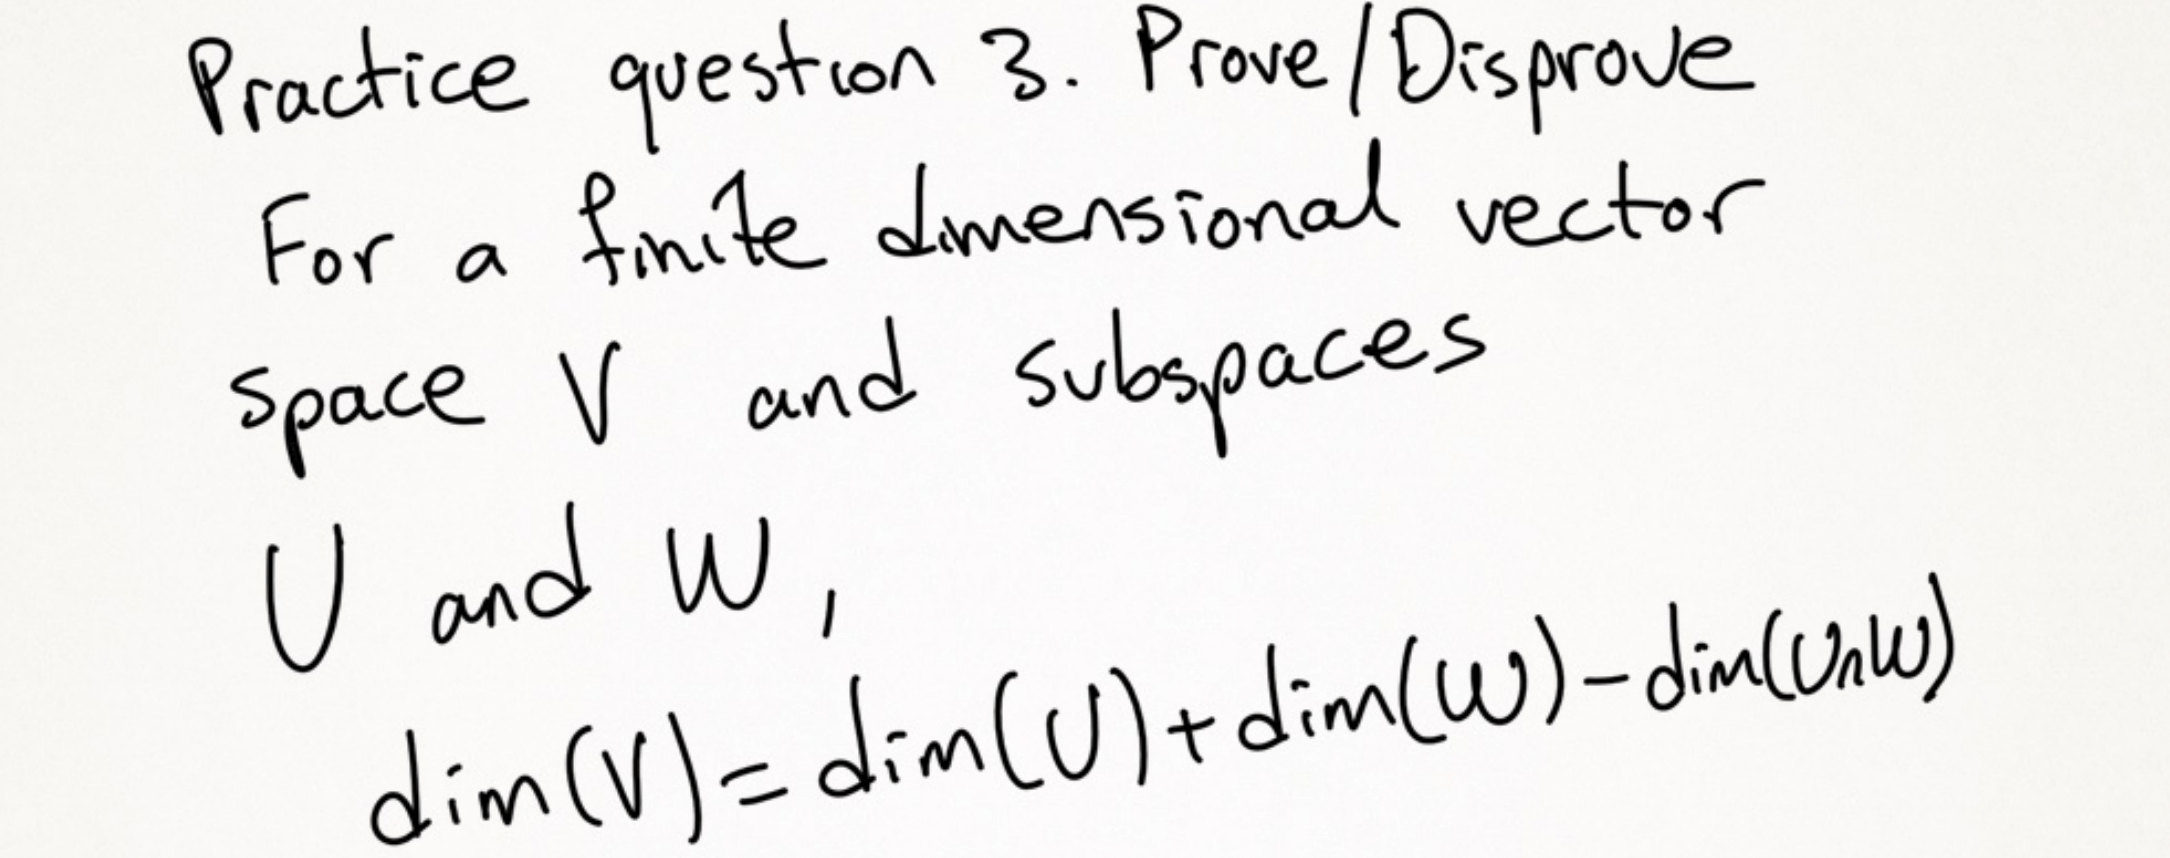 Practice question 3. Prove/Disprove
For a finite dimensional vector
space V and subspaces
U and W,
dim(V)=dim(U)+dim(W)-dim(U∩W)